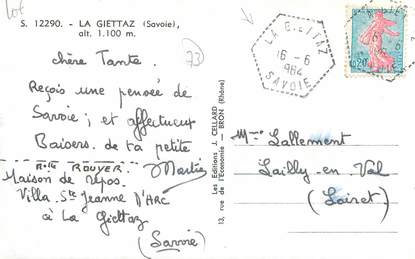 Lot
S. 12290. - LA GIETTAZ (Savoie),
alt. 1.100 m.
73
chère Tante.
Reçois une pensée de
Savoie ; et affectueux
Baisers de ta petite
Martine
ROUYER.
Maison de repos.
Villa Ste Jeanne D'ARC
à La Giettaz
(Savoie)
Les Editions J. CELLARD
13, rue de l'Economie - BRON (Rhône)
LA GIETTAZ
16-6
1964
SAVOIE
0,20
Mme Lallement
Lailly-en-Val
(Loiret)